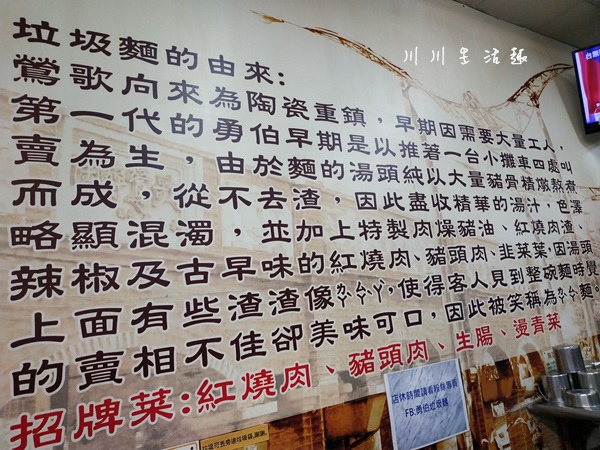 川川生活趣
垃圾麵的由來:
鶯歌向來為陶瓷重鎮，早期因需要大量工人，
第一代的勇伯早期是以推著一台小攤車四處叫
賣為生，由於麵的湯頭純以大量豬骨精燉熬煮
而成，從不去渣，因此盡收精華的湯汁，色澤
略顯混濁，並加上特製肉燥豬油、紅燒肉渣、
辣椒及古早味的紅燒肉、豬頭肉、韭菜葉，因湯頭
上面有些渣渣像ㄉㄆㄣㄚˊ，使得客人見到整碗麵時覺
的賣相不佳卻美味可口，因此被笑稱為ㄆㄣ麵。
招牌菜:紅燒肉、豬頭肉、生腸、燙青菜
店休時間請看粉絲專頁
FB:勇伯垃圾麵